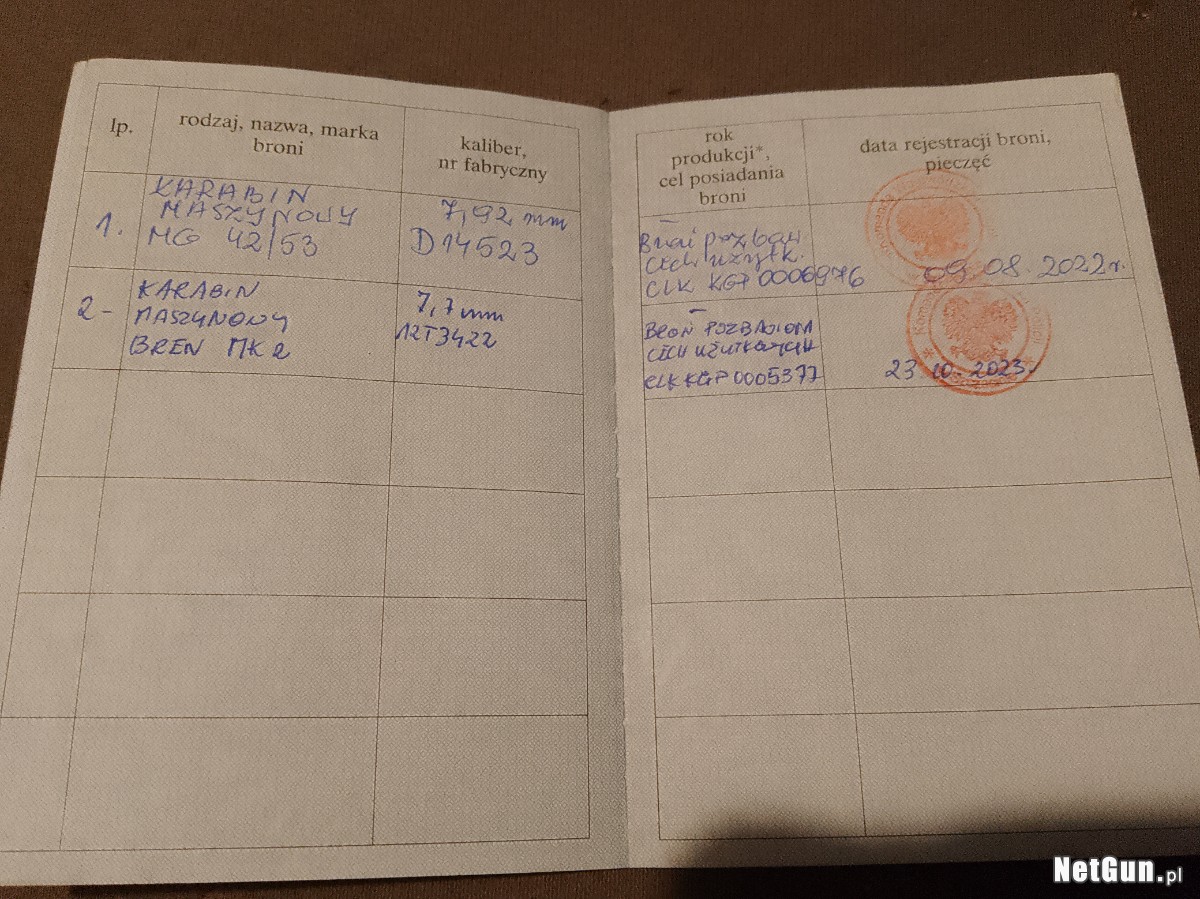 lp.
rodzaj, nazwa, marka
broni
kaliber,
nr fabryczny
rok
produkcji*,
cel posiadania
broni
data rejestracji broni,
pieczęć
1.
KARABIN
MASZYNOWY
MG 42/53
7,92 mm
D14523
Broń pozbaw.
cech użytk.
CLK KGP 0006976
09.08.2022r.
2-
KARABIN
MASZYNOWY
BREN MK2
7,7 mm
12T3422
BROŃ POZBAWIONA
CECH UŻYTKOWYCH
CLK KGP 0005377
23.10.2023r.
NetGun.pl